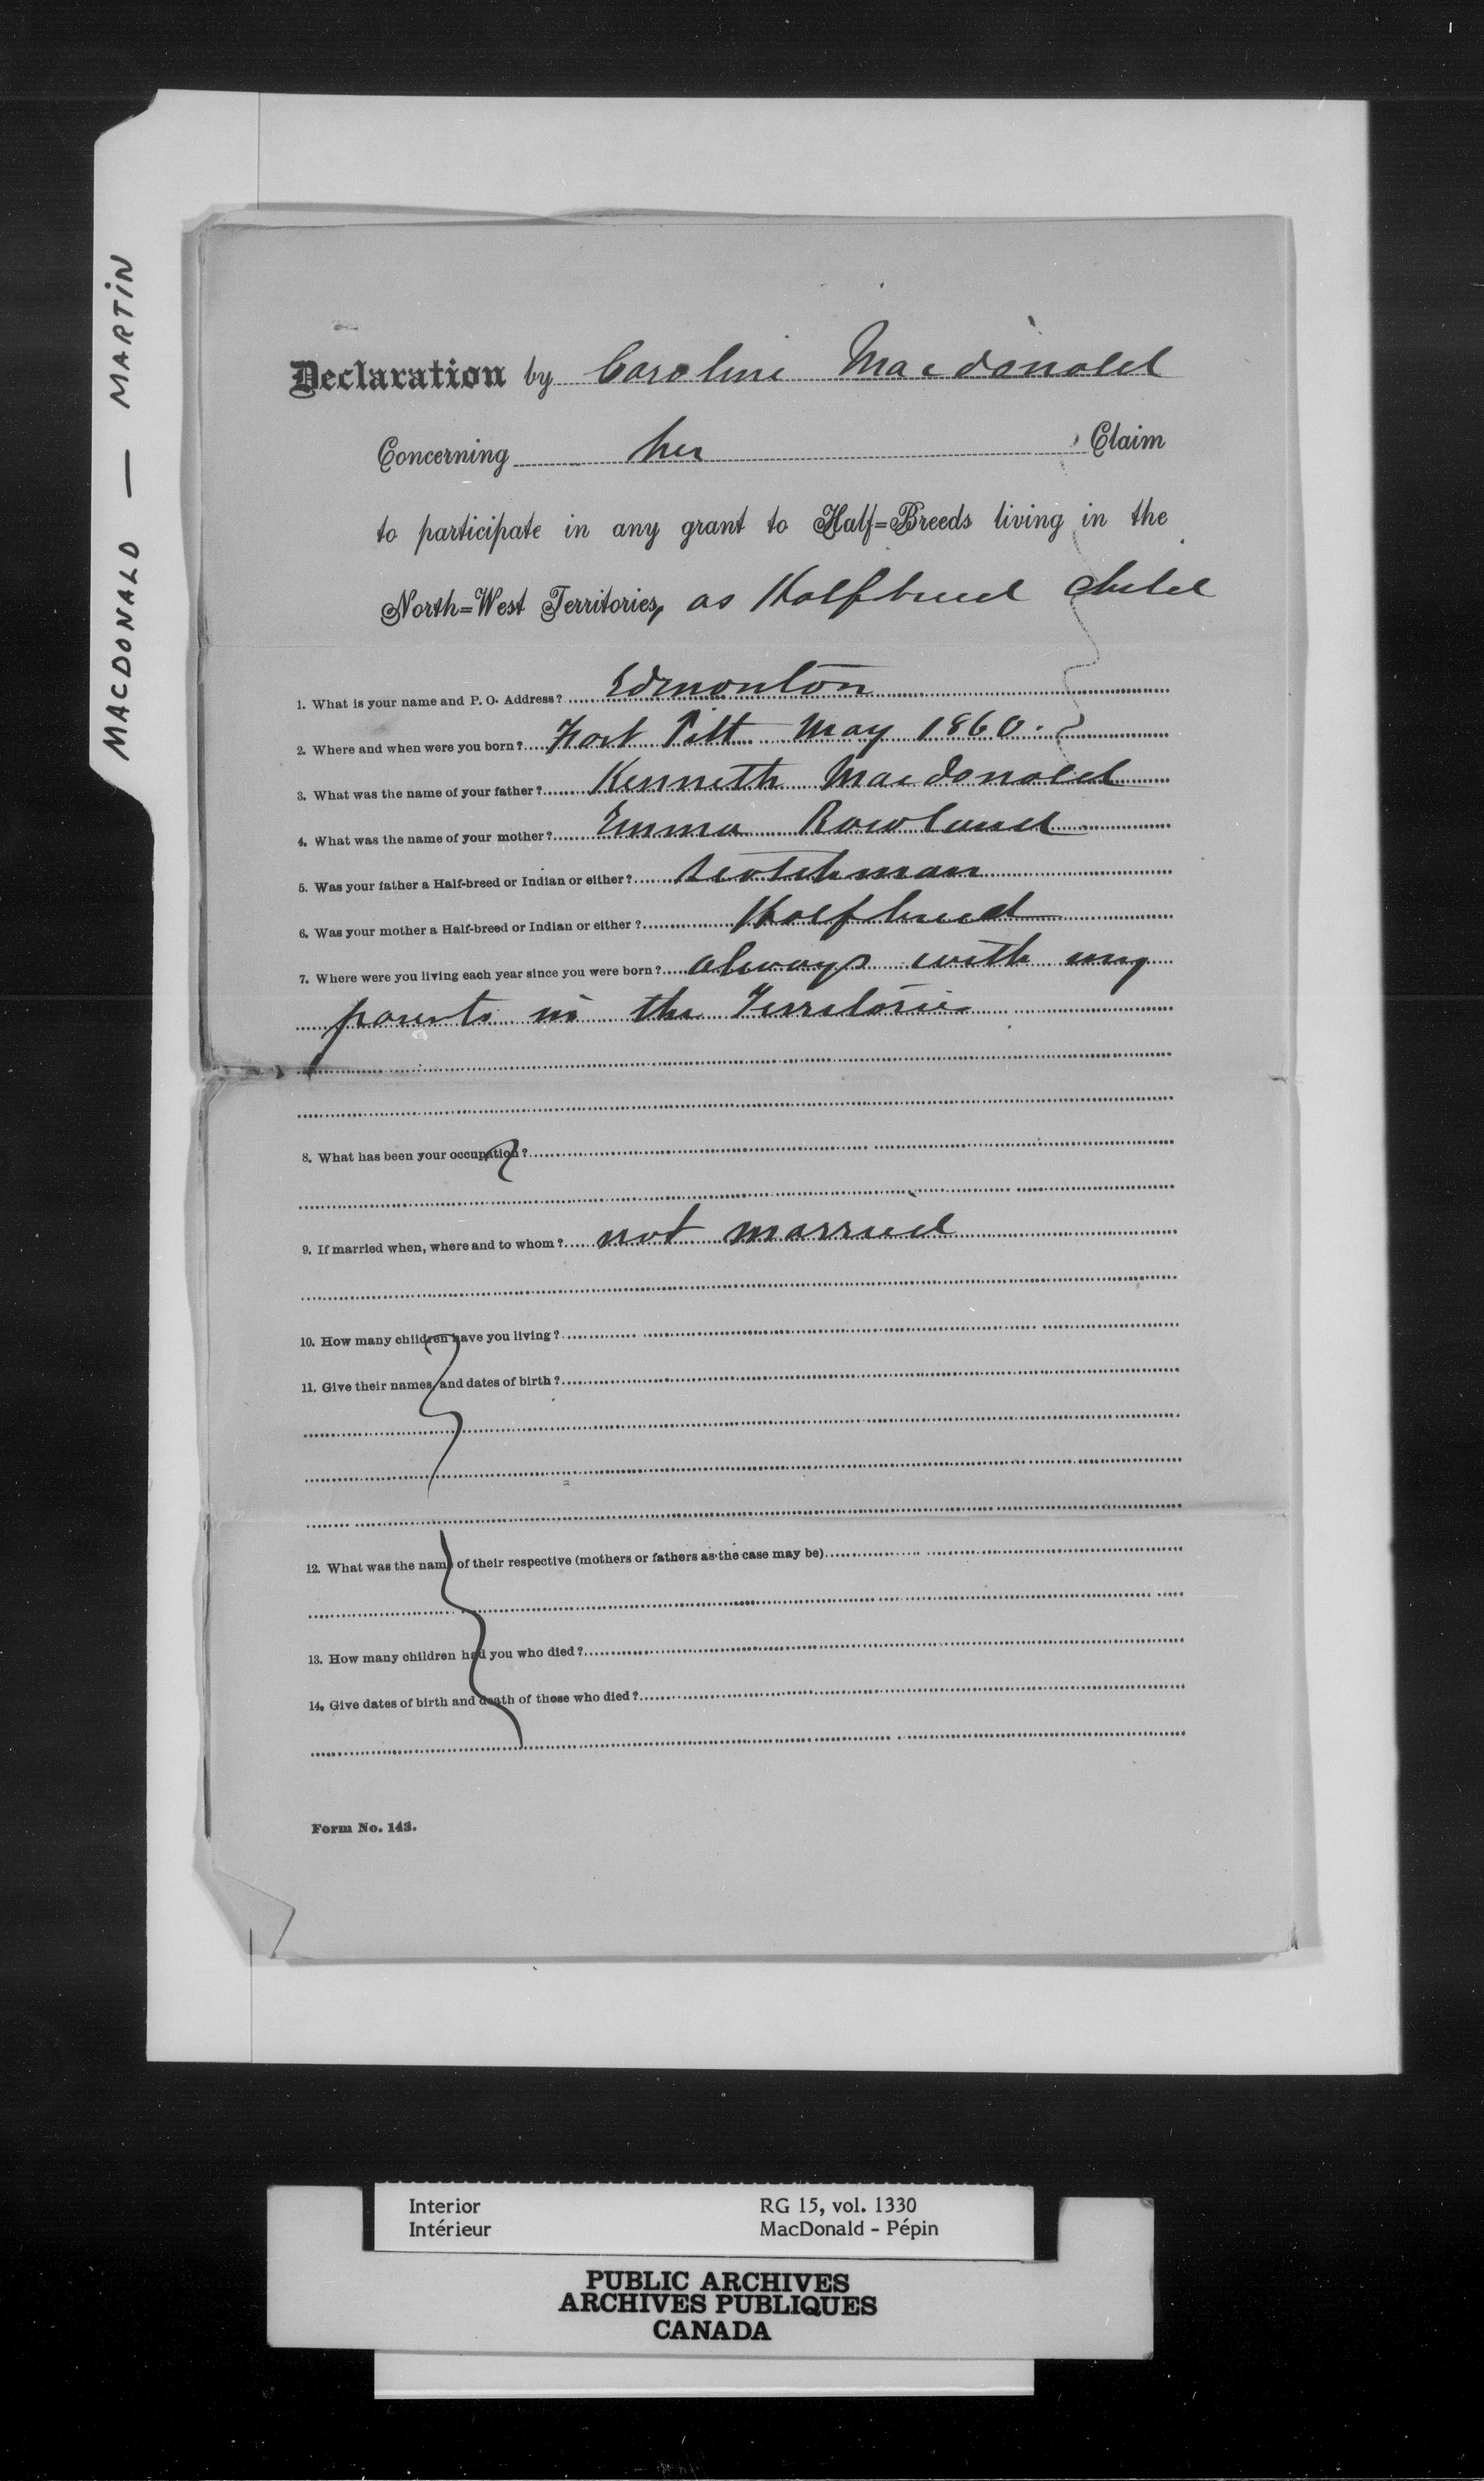 MACDONALD — MARTIN
Declaration by Caroline Macdonald
Concerning her Claim
to participate in any grant to Half=Breeds living in the
North=West Territories, as Halfbreed Child
1. What is your name and P. O. Address? Edmonton
2. Where and when were you born? Fort Pitt May 1860.
3. What was the name of your father? Kenneth Macdonald
4. What was the name of your mother? Emma Rowland
5. Was your father a Half-breed or Indian or either? Scotchman
6. Was your mother a Half-breed or Indian or either? Halfbreed
7. Where were you living each year since you were born? always with my
parents in the Territories
8. What has been your occupation?
9. If married when, where and to whom? not married
10. How many children have you living?
11. Give their names and dates of birth?
12. What was the name of their respective (mothers or fathers as the case may be)
13. How many children had you who died?
14. Give dates of birth and death of those who died?
Form No. 143.
Interior RG 15, vol. 1330
Intérieur MacDonald - Pépin
PUBLIC ARCHIVES
ARCHIVES PUBLIQUES
CANADA